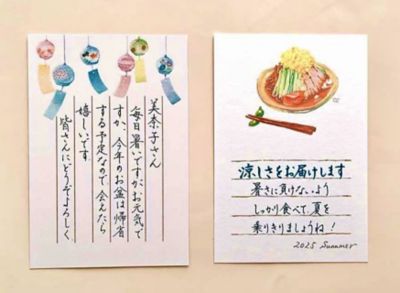 美奈子さん
毎日暑いですがお元気で
すか、今年のお盆は帰省
する予定なので会えたら
嬉しいです
皆さんにどうぞよろしく
涼しさをお届けします
暑さに負けないよう
しっかり食べて、夏を
乗りきりましょうね!
2025 Summer